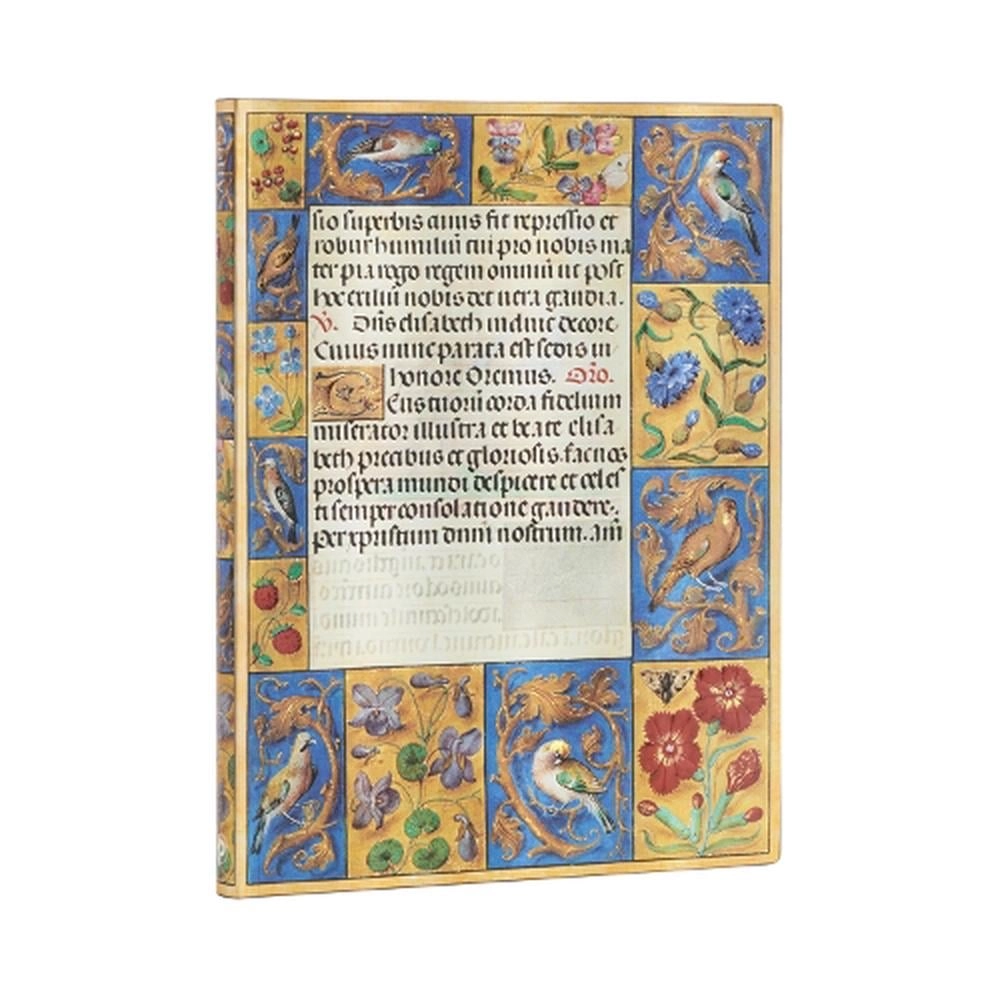 sio superbis cuius fit repressio et
robur humiliū tui pro nobis ma
ter pia rego regem omniū ut post
hoc exiliū nobis det vera gaudia.
V. Diffusa est gracia
Cuius nunc parata est sedis in
honore Oremus. Oro.
Eus tuorū corda fidelium
miserator illustra et beate elisa
beth precibus et gloriosis. fac nos
prospera mundi despicere et celes
ti semper consolatione gaudere.
Per xpristum dnm̄ nostrum. am̄